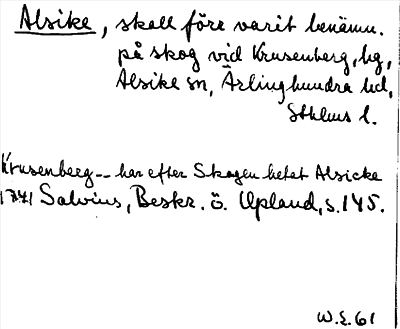 Alsike, skall före varit benämn.
på skog vid Krusenberg, hg,
Alsike sn, Ärlinghundra hd,
Sthlms l.
Krusenberg -- har efter Skogen hetat Alsicke
1741 Salvius, Beskr. ö. Upland, s. 145.
W.E. 61